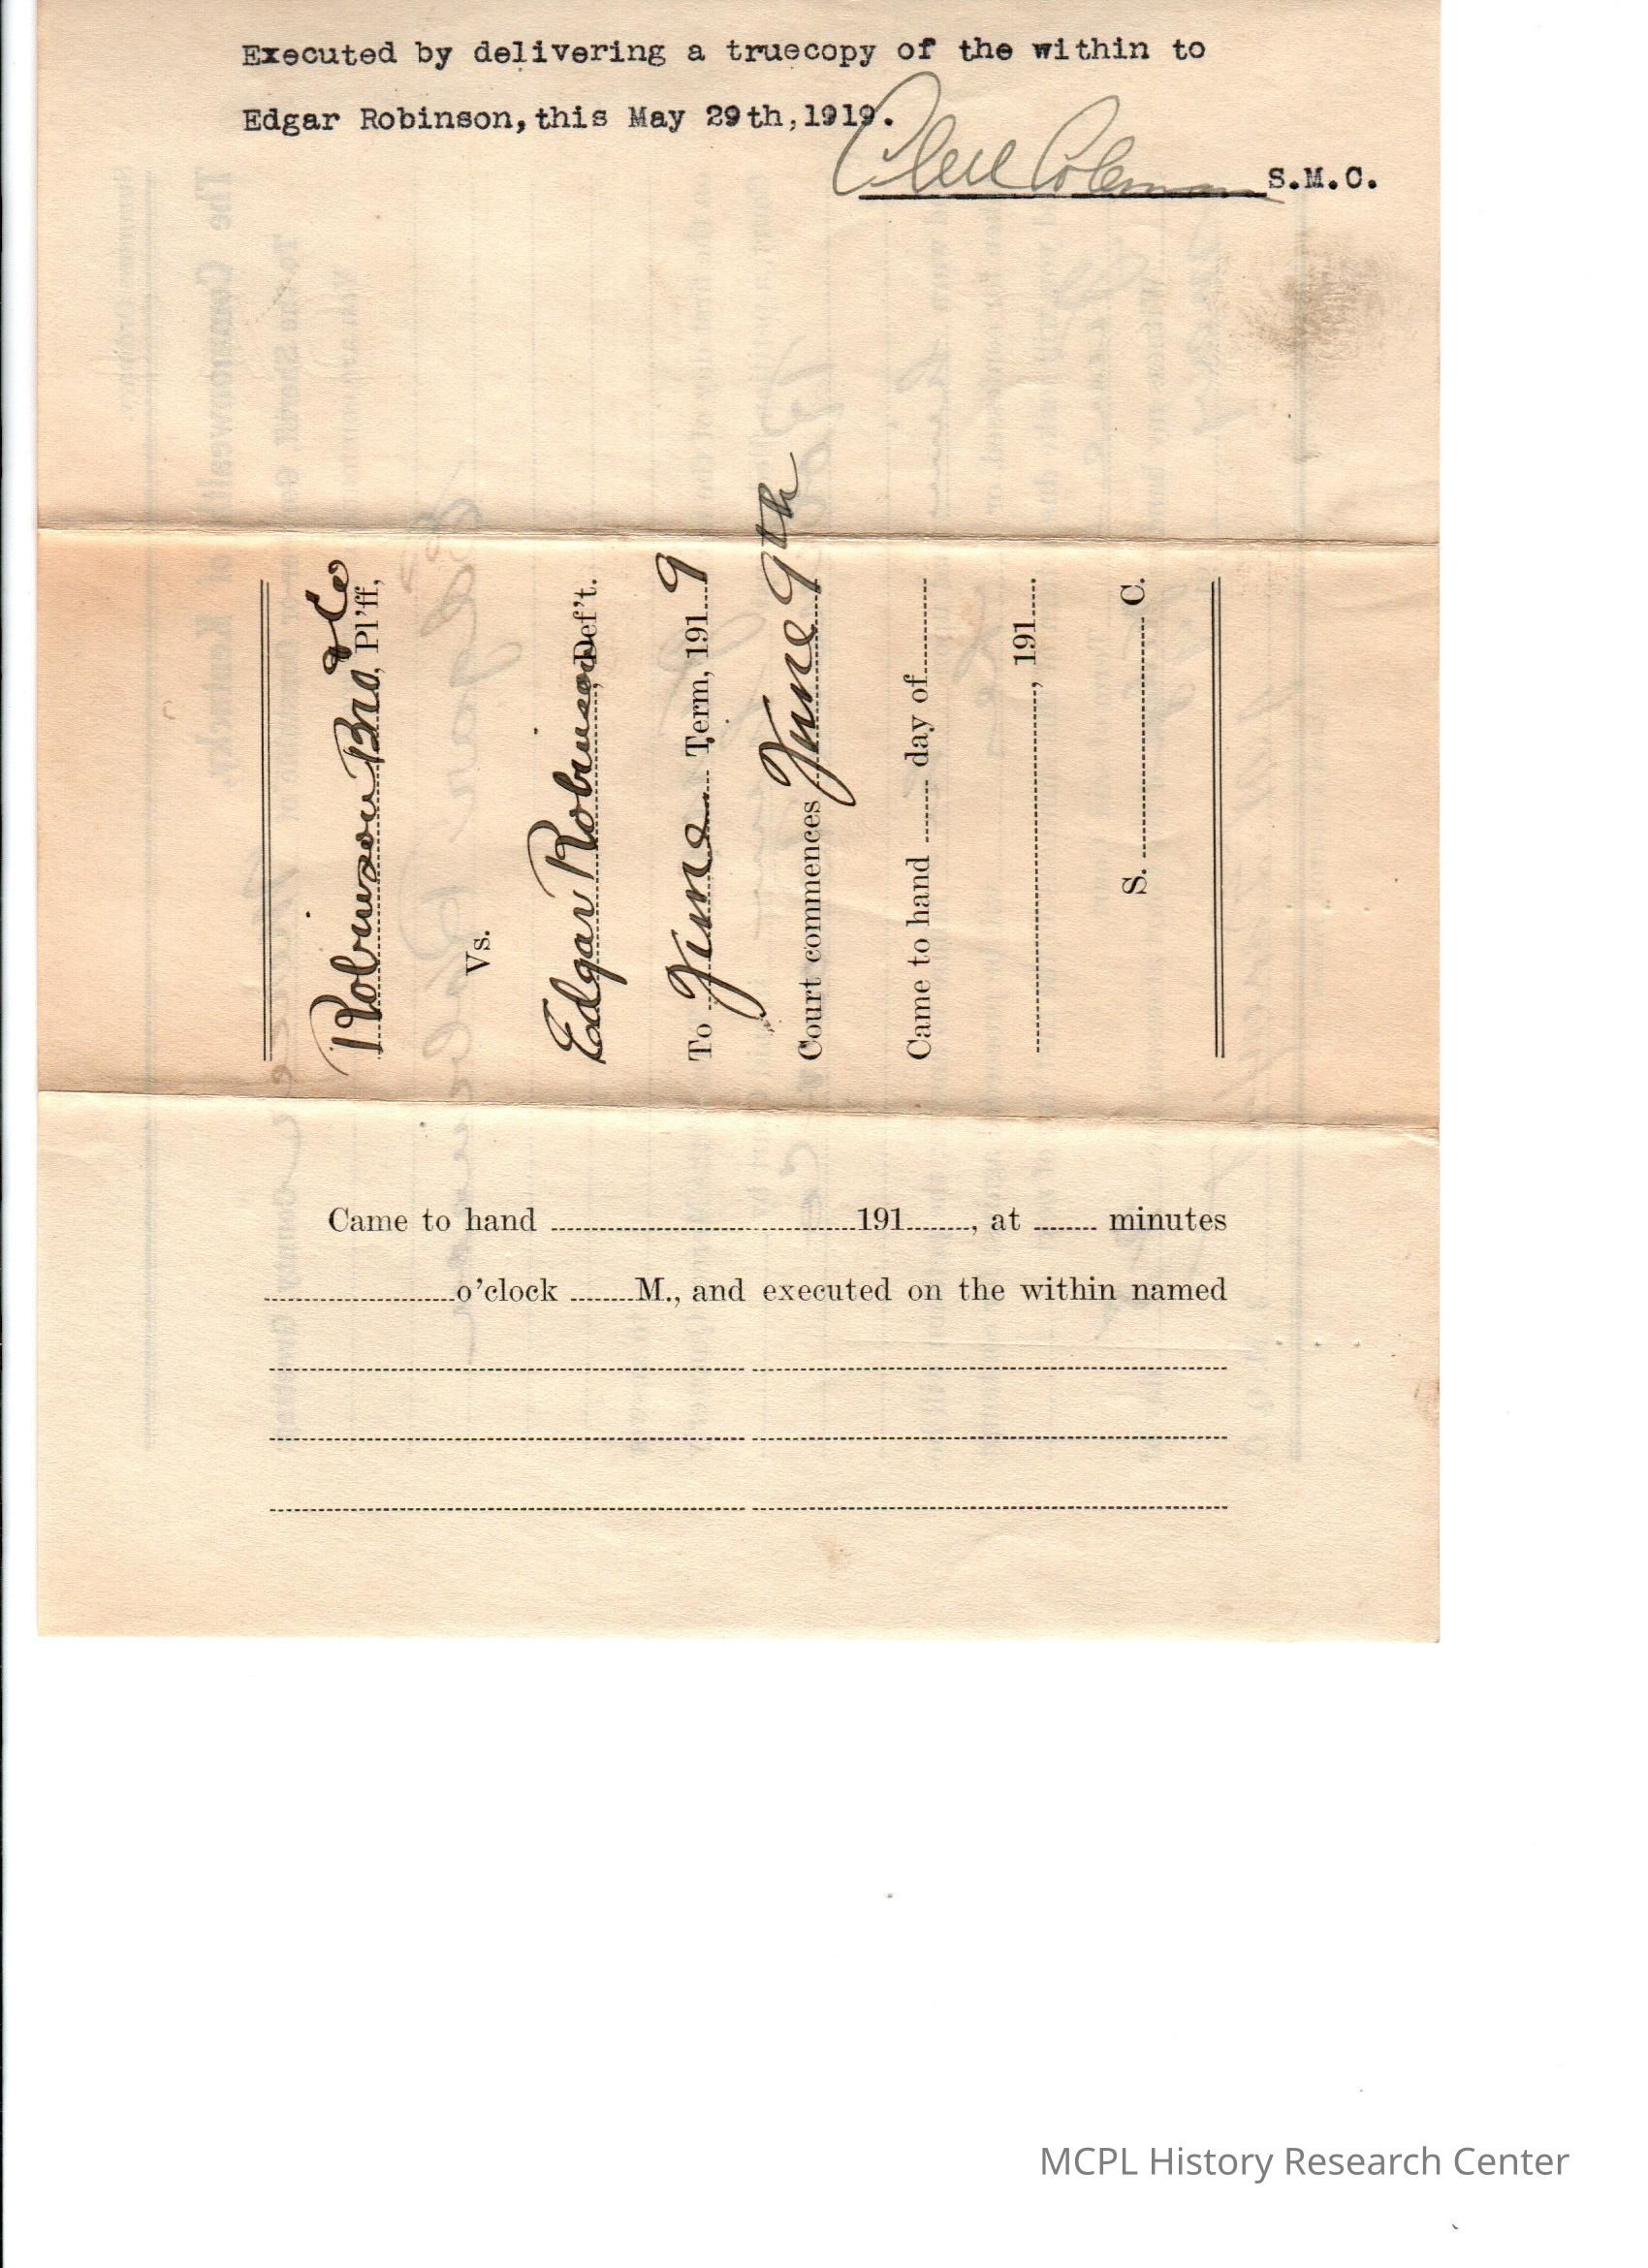 Executed by delivering a truecopy of the within to
Edgar Robinson, this May 29th, 1919.
Coleman S.M.C.
Robinson Bro & Co, Pl'ff,
Vs.
Edgar Robinson, Def't.
To June Term, 1919
Court commences June 9th
Came to hand ........ day of............
........................................, 191.....
S. ........................ C.
Came to hand ........................191........, at ........ minutes
........................o'clock ........M., and executed on the within named
MCPL History Research Center